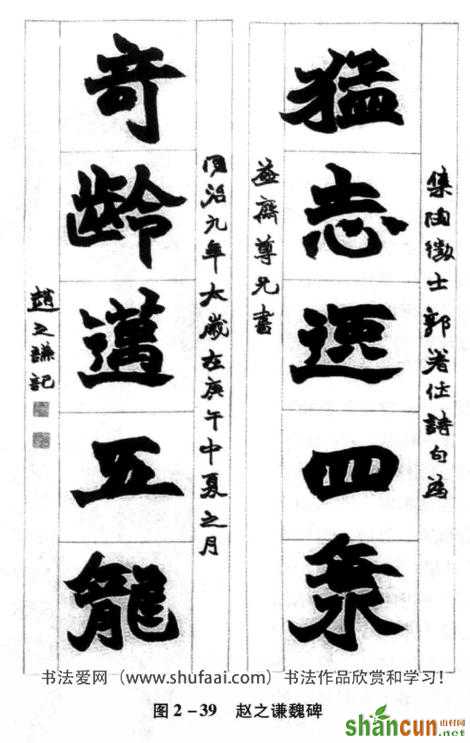 集陶徵士郭著作詩句為
猛志逸四海
益齋尊兄書
同治九年大歲在庚午中夏之月
奇齡邁五龍
趙之謙記
书法爱网(www.shufaai.com)书法作品欣赏和学习!
图2-39 赵之谦魏碑
shancun
山村网
.net